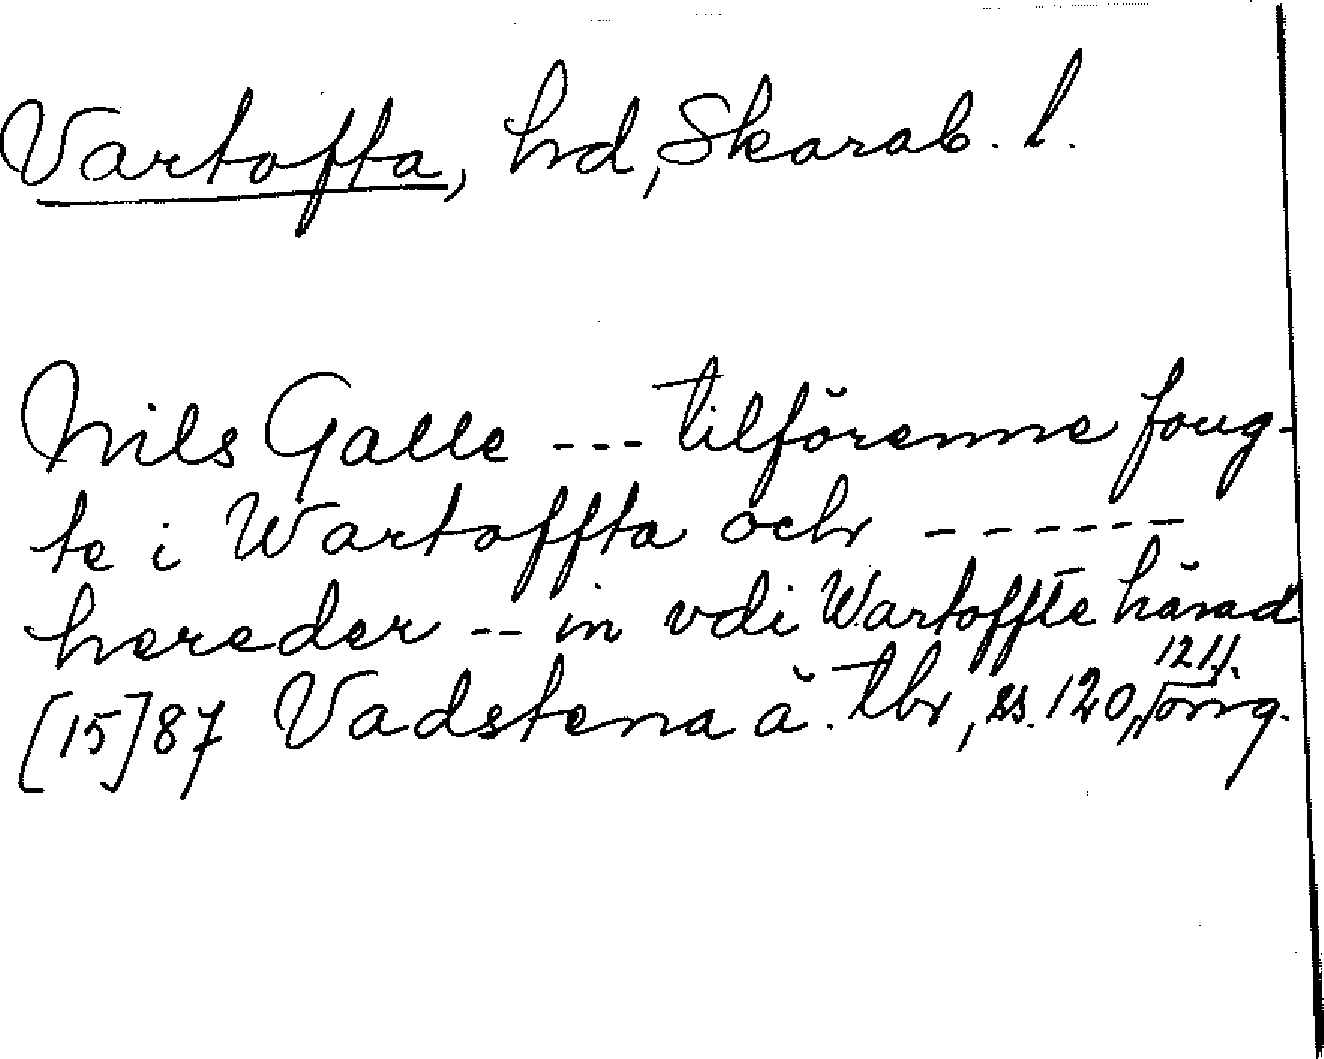 Vartofta, hd, Skarab. l.
Nils Galle --- tilförenne foug-
te i Wartoffta och ------
hereder -- in vdi Wartoffte härad
[15]87 Vadstena ä. tbr, ss. 120, 121,
orig.